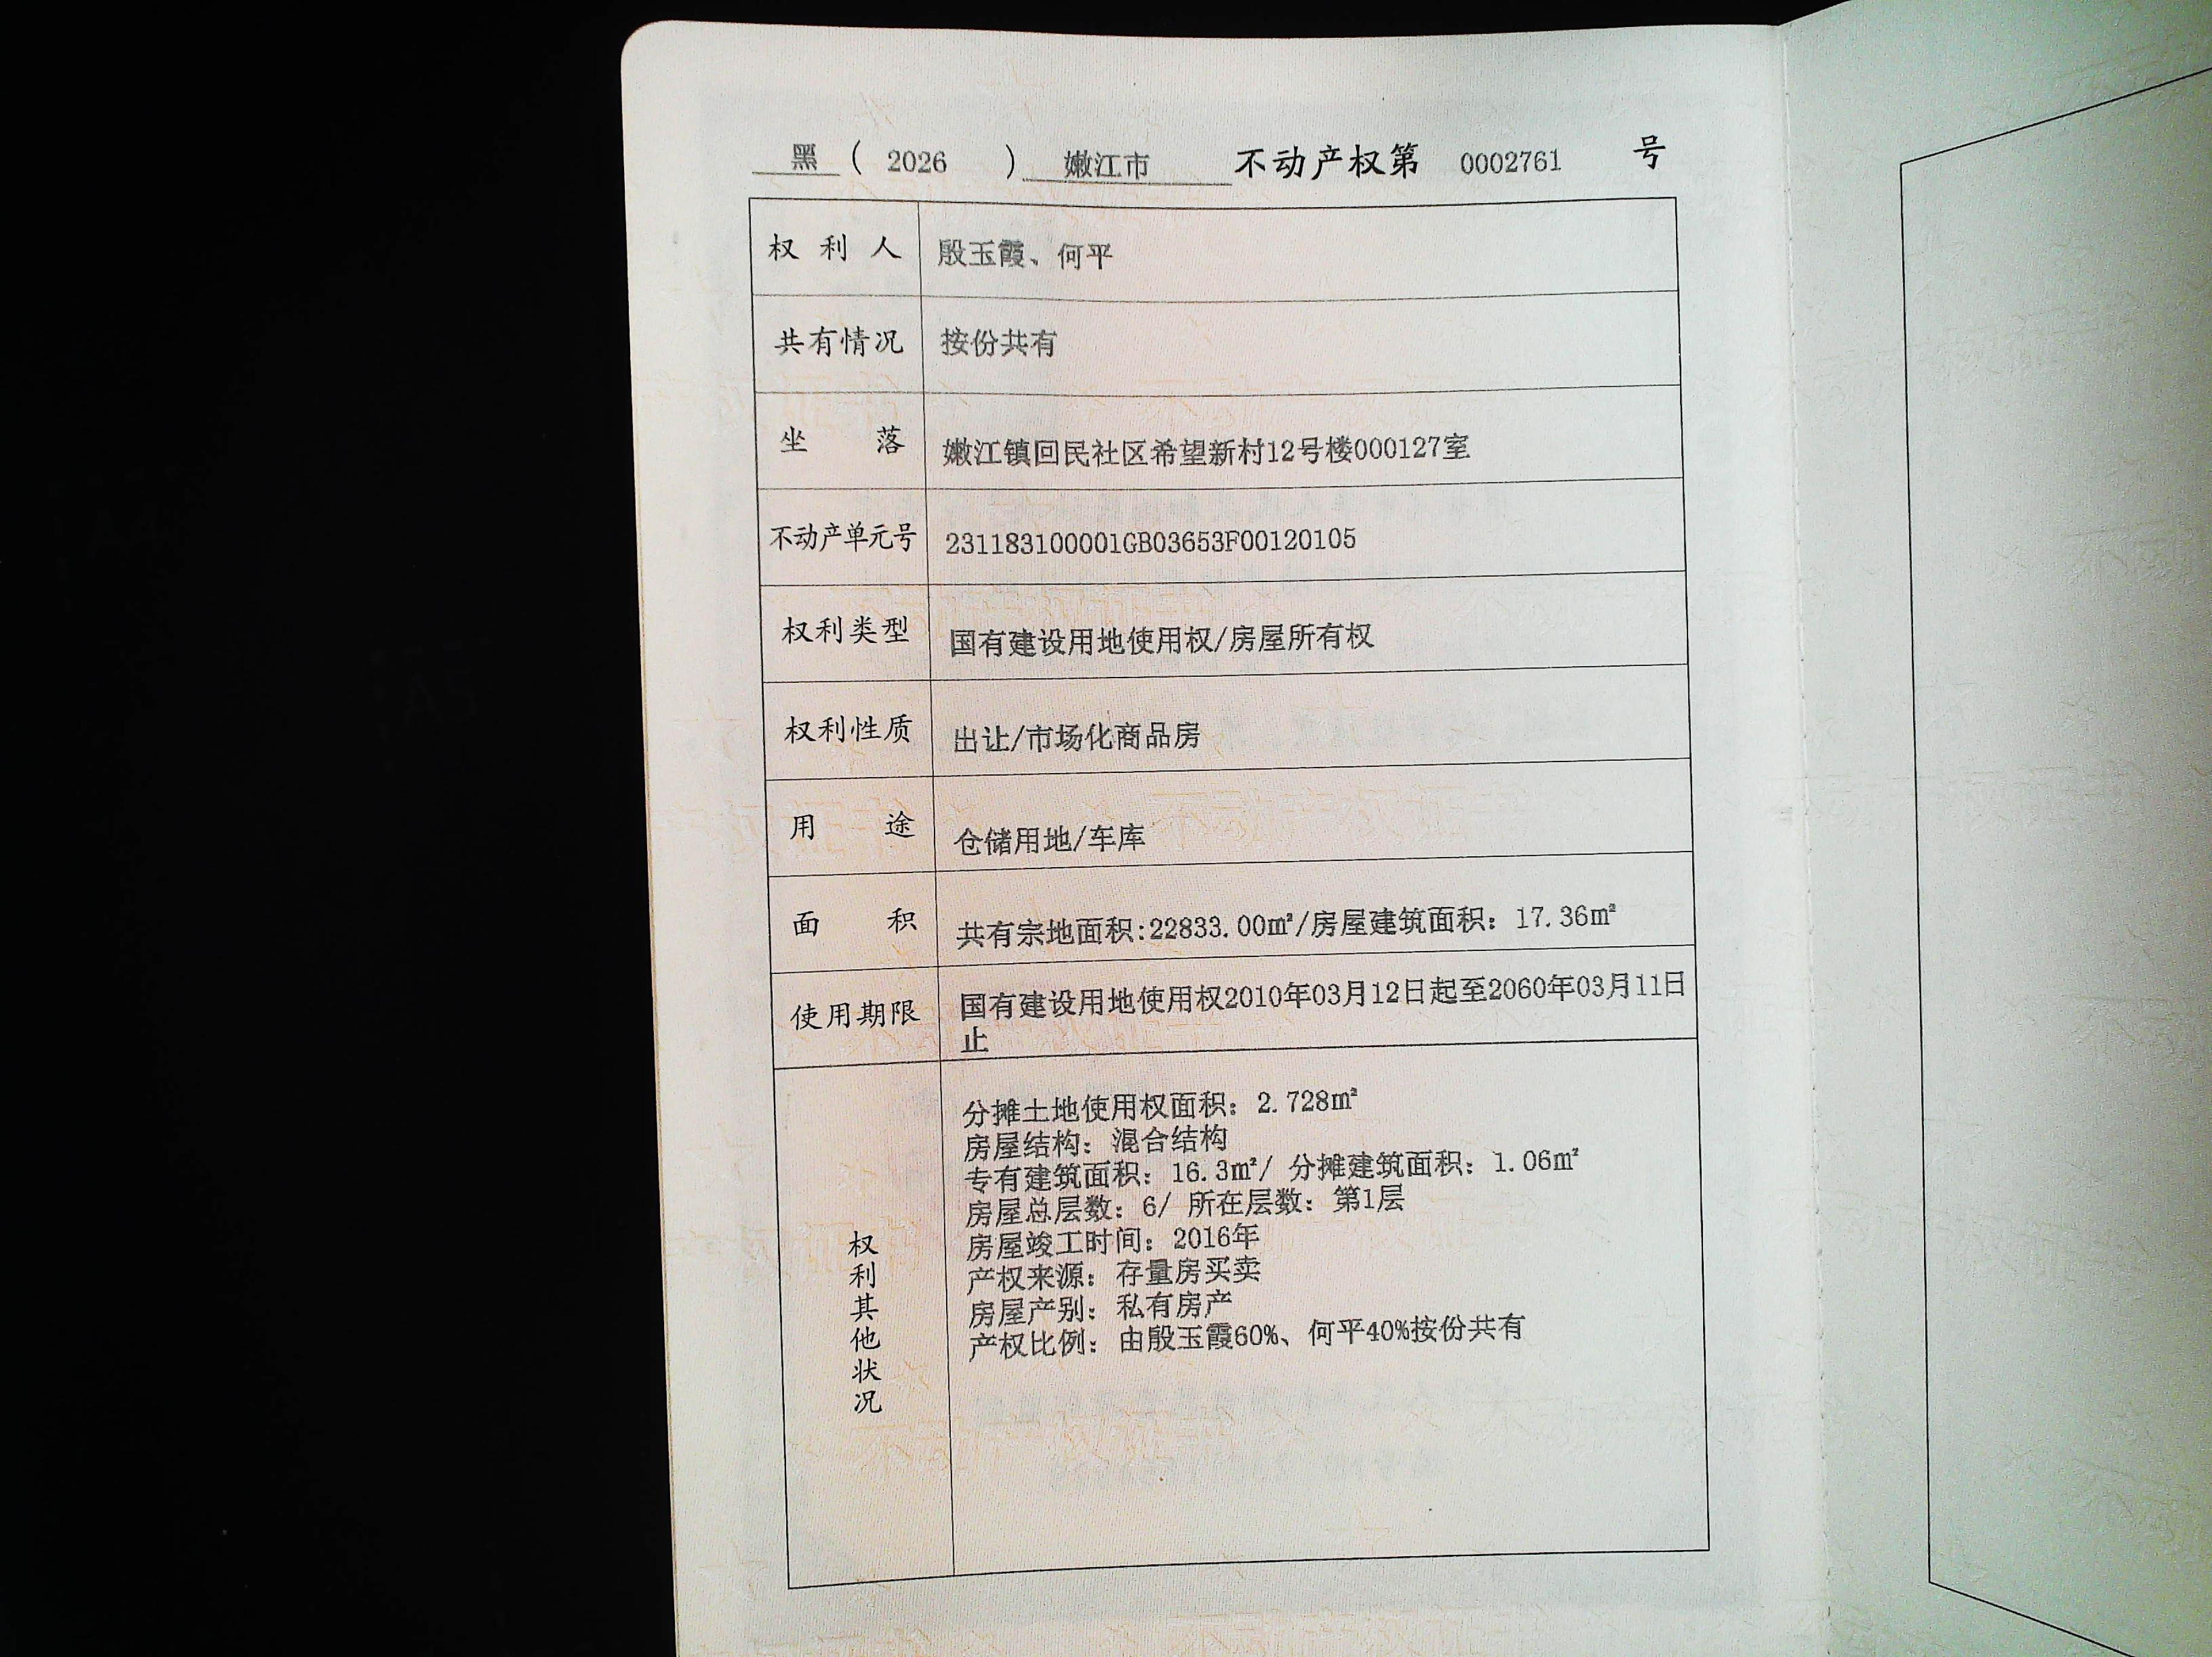 黑 ( 2026 ) 嫩江市 不动产权第 0002761 号
权利人 殷玉霞、何平
共有情况 按份共有
坐落 嫩江镇回民社区希望新村12号楼000127室
不动产单元号 231183100001GB03653F00120105
权利类型 国有建设用地使用权/房屋所有权
权利性质 出让/市场化商品房
用途 仓储用地/车库
面积 共有宗地面积:22833.00㎡/房屋建筑面积：17.36㎡
使用期限 国有建设用地使用权2010年03月12日起至2060年03月11日
止
权利其他状况
分摊土地使用权面积：2.728㎡
房屋结构：混合结构
专有建筑面积：16.3㎡/ 分摊建筑面积：1.06㎡
房屋总层数：6/ 所在层数：第1层
房屋竣工时间：2016年
产权来源：存量房买卖
房屋产别：私有房产
产权比例：由殷玉霞60%、何平40%按份共有